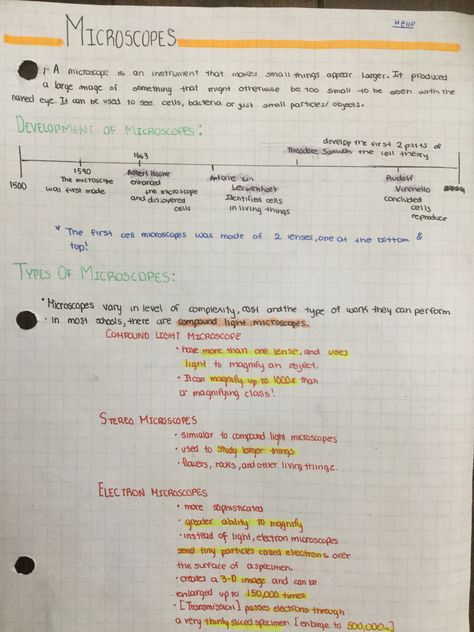 Hello
MICROSCOPES
A microscope is an instrument that makes small things appear larger. It produced
a large image of something that might otherwise be too small to be seen with the
naked eye. It can be used to see cells, bacteria or just small particles/objects.
DEVELOPMENT OF MICROSCOPES:
develop the first 2 parts of
Theodore the cell theory
1663
1590
1500
The microscope
was first made
Robert Hooke
enhanced
the microscope
and discovered
cells
Antonie van
Leewenhoek
Identified cells
in living things
Rudolf
concluded
cells
reproduce
* The first cell microscopes was made of 2 lenses, one at the bottom &
top!
TYPES OF MICROSCOPES:
• Microscopes vary in level of complexity, cost and the type of work they can perform
• in most schools, there are compound light microscopes.
COMPOUND LIGHT MICROSCOPE
• have more than one lense, and uses
light to magnify an object.
• It can magnify up to 1000x than
a magnifying class!
STEREO MICROSCOPES
• simialar to compound light microscopes
• used to study larger things
• flowers, rocks, and other living things.
ELECTRON MICROSCOPES
• more sophisticated
• greater ability to magnify
• instead of light, electron microscopes
send tiny particles called electrons over
the surface of a specimen.
• creates a 3-D image and can be
enlarged up to 150,000 times
• [Transmission] passes electrons through
a very thinly sliced specimen [enlarge to 500,000x]